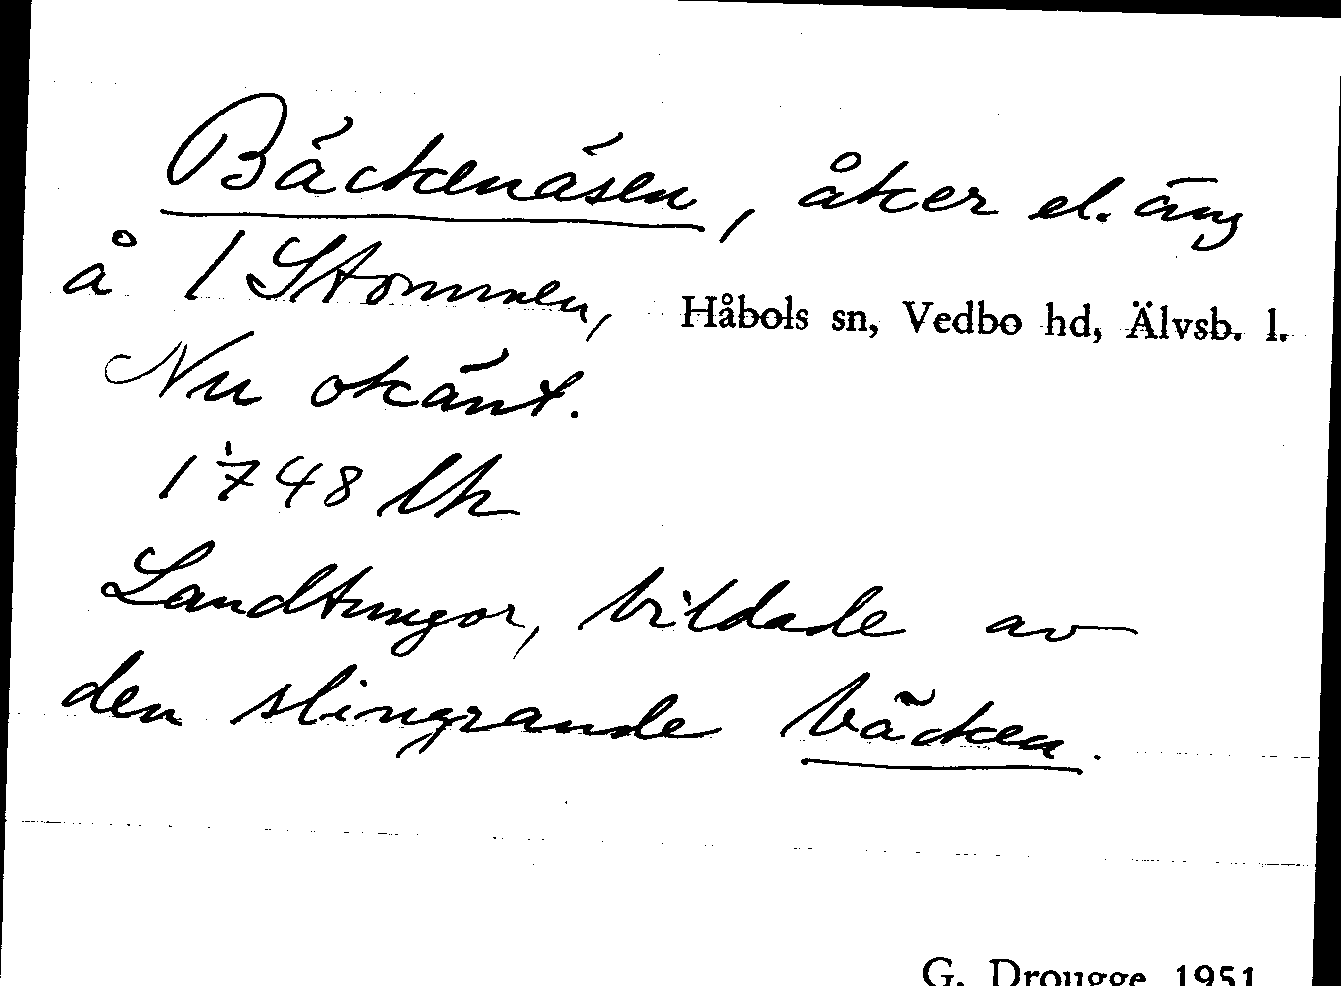 Bäckenäsen, åker el. äng
å 1 Stommen, Håbols sn, Vedbo hd, Älvsb. l.
Nu okänt.
1748 lh
Landtungor, bildade av
den slingrande bäcken.
G. Drougge 1951